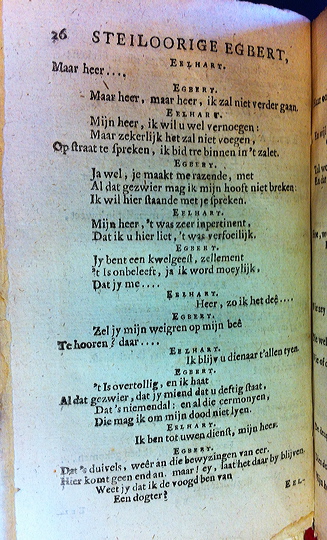 26 STEILOORIGE EGBERT,
EELHART.
Maar heer....
EGBERT.
Maar heer, maar heer, ik zal niet verder gaan.
EELHART.
Mijn heer, ik wil u wel vernoegen:
Maar zekerlijk het zal niet voegen,
Op straat te spreken, ik bid treê binnen in 't zalet.
EGBERT.
Ja wel, je maakt me razende, met
Al dat gezwier mag ik mijn hooft niet breken:
Ik wil hier staande met je spreken.
EELHART.
Mijn heer, 't was zeer inpertinent,
Dat ik u hier liet, 't was verfoeilijk.
EGBERT.
Jy bent een kwelgeest, zellement
't Is onbeleeft, ja ik word moeylijk,
Dat jy me....
EELHART.
Heer, zo ik het deê....
EGBERT.
Zel jy mijn weigren op mijn beê
Te hooren? daar....
EELHART.
Ik blijv u dienaar t'allen tyen.
EGBERT.
't Is overtollig, en ik haat
Al dat gezwier, dat jy miend dat u deftig staat,
Dat's niemendal: en al die cermonyen,
Die mag ik om mijn dood niet lyen.
EELHART.
Ik ben tot uwen dienst, mijn heer.
EGBERT.
Dat 's duivels, weêr an die bewyzingen van eer.
Hier komt geen end an. maar! ey, laat het daar by blijven.
Weet jy dat ik de voogd ben van
Een dogter?
EEL-